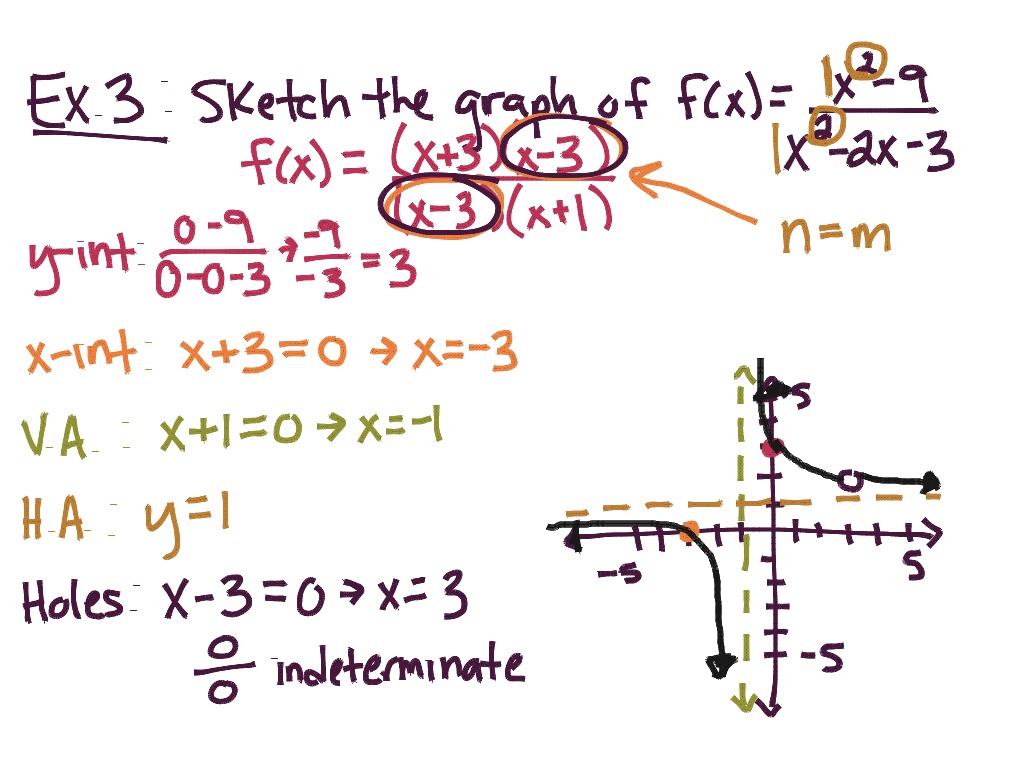 Ex.3: Sketch the graph of f(x) = (1x² - 9)/(1x² - 2x - 3)
f(x) = ((x+3)(x-3))/((x-3)(x+1))
n = m
y-int: (0 - 9)/(0 - 0 - 3) → -9/-3 = 3
x-int: x+3 = 0 → x = -3
V.A.: x+1 = 0 → x = -1
H.A.: y = 1
Holes: x - 3 = 0 → x = 3
0/0 indeterminate
5
-5
5
-5